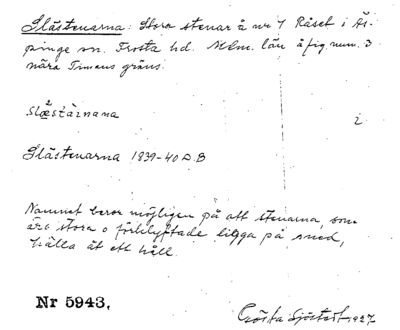 Slästenarna: Stora stenar å nr 7 Råset i Äs-
pinge sn. Frosta hd. Mlm. län å fig. num. 3
nära Timans gräns.
slæstàinana
2
Slästenarna 1939-40 D.B
Namnet beror möjligen på att stenarna, som
äro stora o förklyftade ligga på sned,
hälla åt ett håll.
Nr 5943,
Gösta Sjöstedt 1927